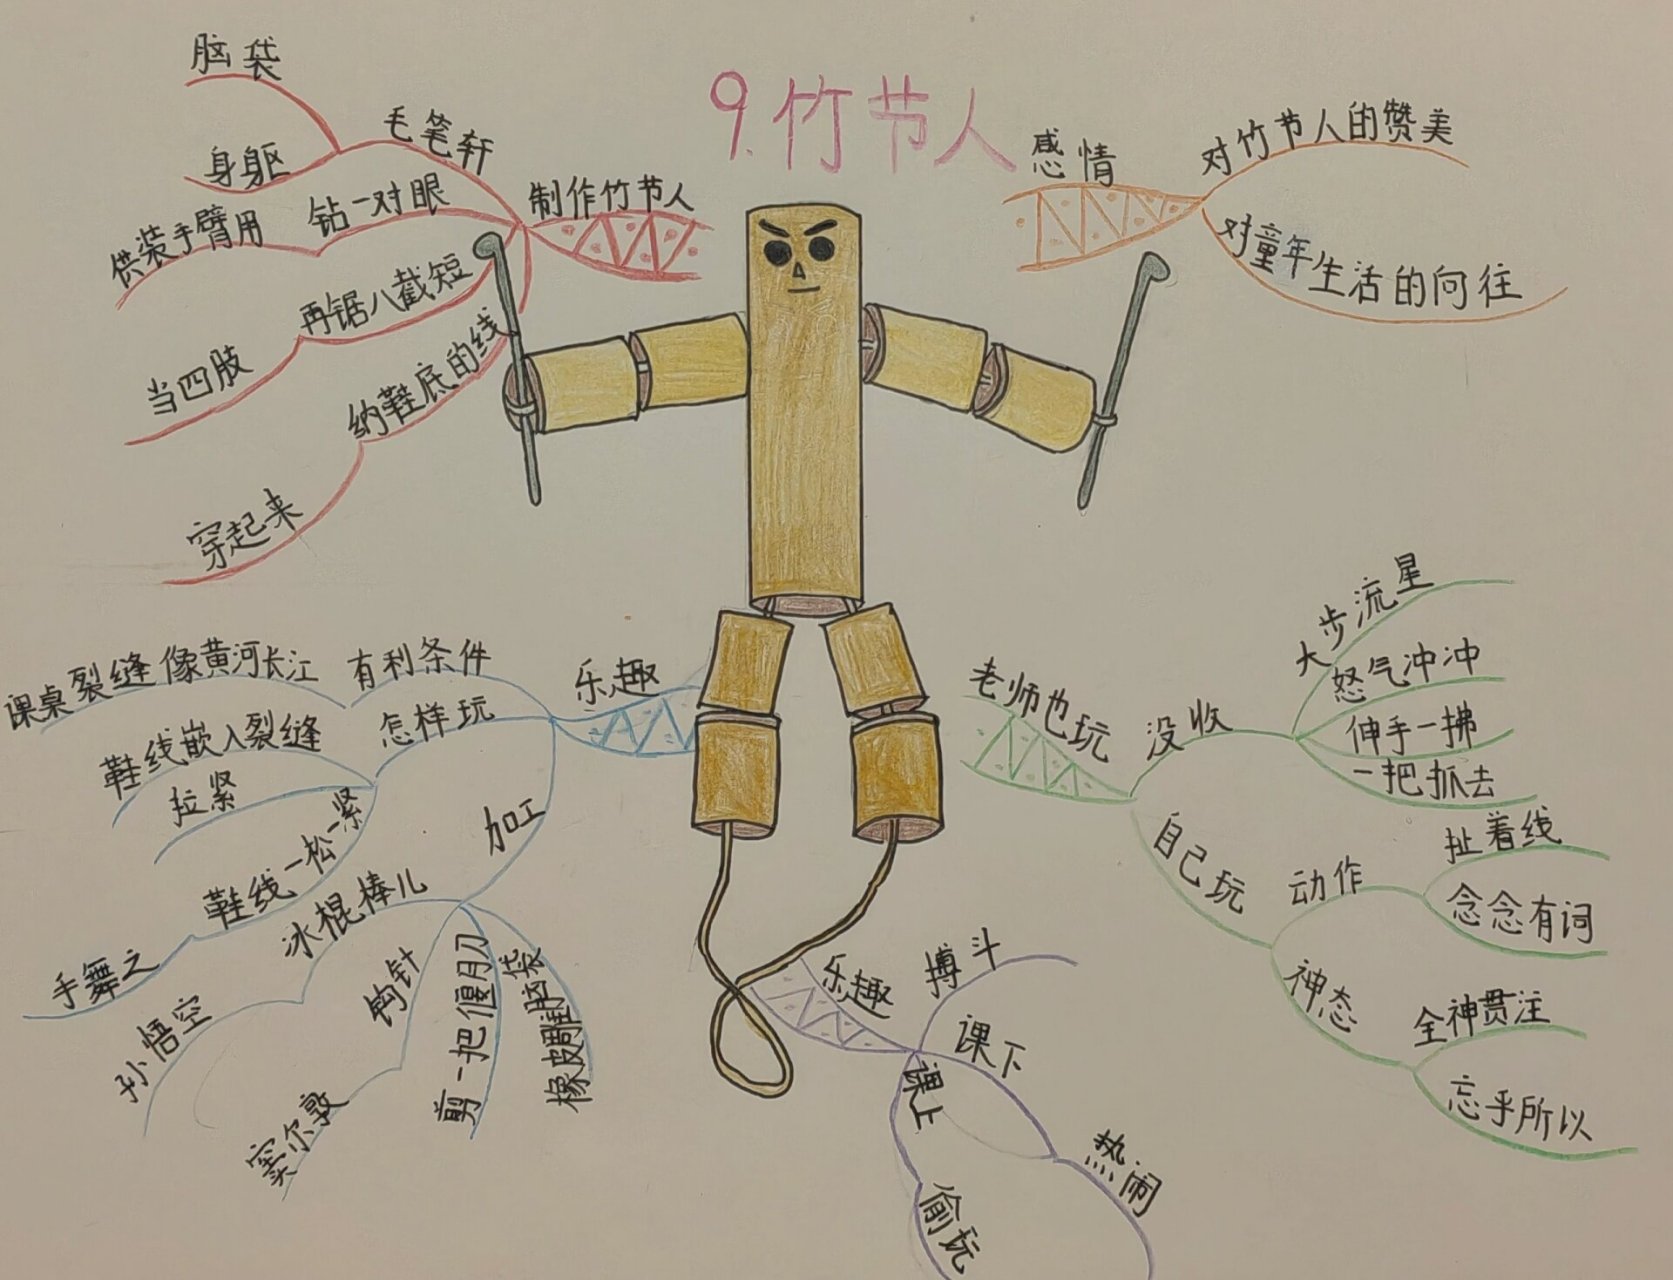 9.竹节人
制作竹节人
毛笔轩
脑袋
身躯
钻一对眼
供装手臂用
再锯八截短
当四肢
纳鞋底的线
穿起来
感情
对竹节人的赞美
对童年生活的向往
乐趣
有利条件
课桌裂缝像黄河长江
怎样玩
鞋线嵌入裂缝
拉紧
鞋线一松一紧
手舞之
加工
冰棍棒儿
孙悟空
钩针
窦尔敦
剪一把偃月刀
橡皮雕脑袋
老师也玩
没收
大步流星
怒气冲冲
伸手一拂
一把抓去
自己玩
动作
扯着线
念念有词
神态
全神贯注
忘乎所以
乐趣
搏斗
课下
热闹
课上
偷玩